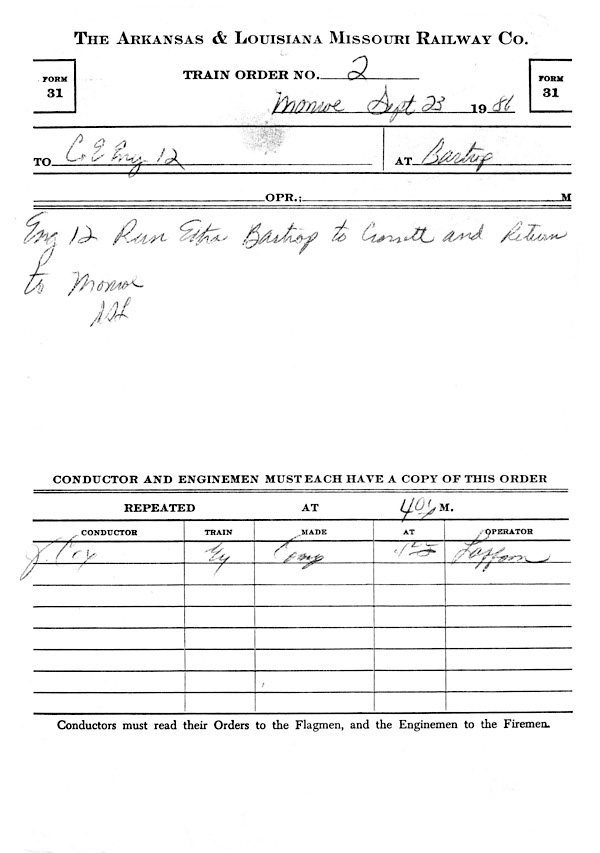 THE ARKANSAS & LOUISIANA MISSOURI RAILWAY CO.
FORM 31
TRAIN ORDER NO. 2
FORM 31
Monroe Sept 23 1986
TO C & E Eng 12 AT Bastrop
OPR.; M
Eng 12 Run Extra Bastrop to Crossett and Return
to Monroe
CONDUCTOR AND ENGINEMEN MUST EACH HAVE A COPY OF THIS ORDER
REPEATED AT M.
CONDUCTOR TRAIN MADE AT OPERATOR
J. Cox Comp
Conductors must read their Orders to the Flagmen, and the Enginemen to the Firemen.